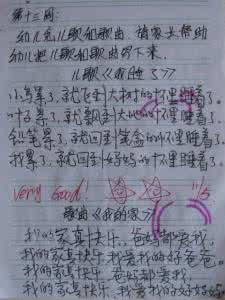 第十三周：
幼儿念儿歌和歌曲，请家长帮助
幼儿把儿歌和歌曲写下来。
儿歌《我睡了》
小鸟累了，就飞到大树的怀里睡着了。
叶子累了，就飘到大地的怀里睡着了。
铅笔累了，就回到笔盒的怀里睡着了。
我累了，就回到妈妈的怀里睡着了。
Very Good! 11/5
歌曲《我的家》
我的家真快乐，爸妈都爱我，
我的家真快乐，我爱我的好爸爸。
我的家真快乐，爸妈都爱我，
我的家真快乐，我爱我的好妈妈。